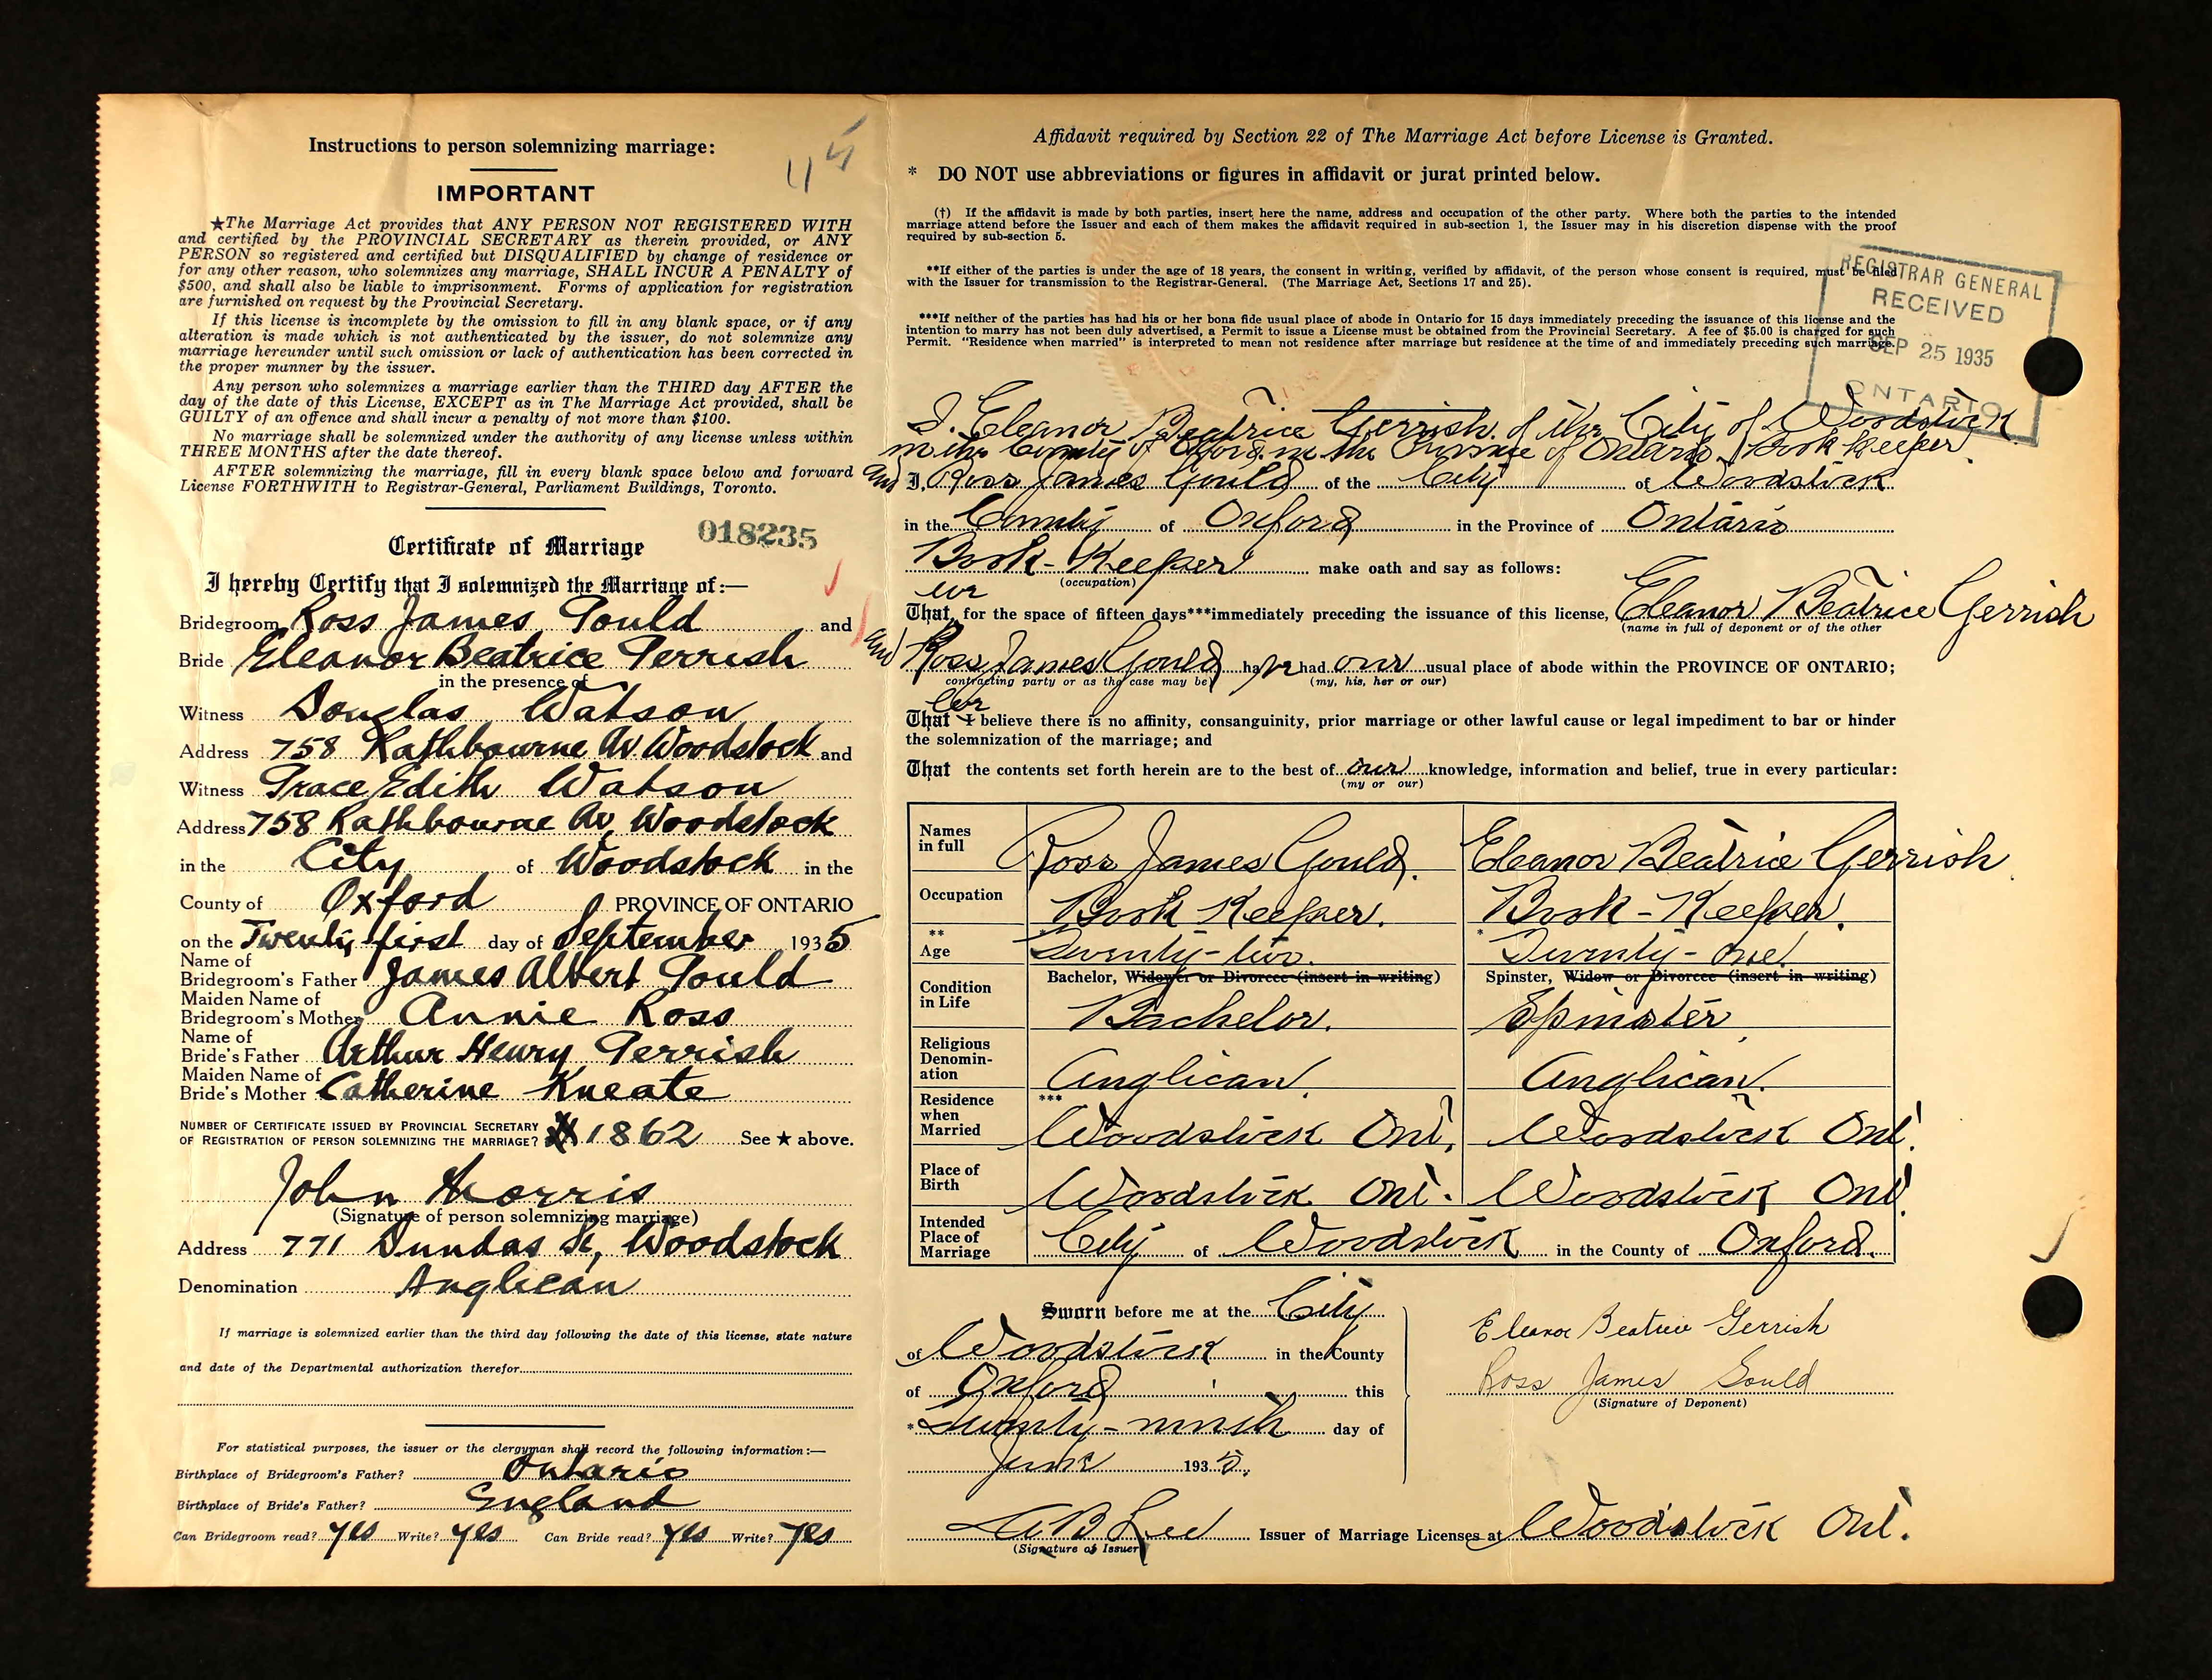 Instructions to person solemnizing marriage:
45
IMPORTANT
★The Marriage Act provides that ANY PERSON NOT REGISTERED WITH
and certified by the PROVINCIAL SECRETARY as therein provided, or ANY
PERSON so registered and certified but DISQUALIFIED by change of residence or
for any other reason, who solemnizes any marriage, SHALL INCUR A PENALTY of
$500, and shall also be liable to imprisonment. Forms of application for registration
are furnished on request by the Provincial Secretary.
If this license is incomplete by the omission to fill in any blank space, or if any
alteration is made which is not authenticated by the issuer, do not solemnize any
marriage hereunder until such omission or lack of authentication has been corrected in
the proper manner by the issuer.
Any person who solemnizes a marriage earlier than the THIRD day AFTER the
day of the date of this License, EXCEPT as in The Marriage Act provided, shall be
GUILTY of an offence and shall incur a penalty of not more than $100.
No marriage shall be solemnized under the authority of any license unless within
THREE MONTHS after the date thereof.
AFTER solemnizing the marriage, fill in every blank space below and forward
License FORTHWITH to Registrar-General, Parliament Buildings, Toronto.
018235
Certificate of Marriage
I hereby Certify that I solemnized the Marriage of:—
Bridegroom Ross James Gould and
Bride Eleanor Beatrice Gerrish
in the presence of
Witness Douglas Watson
Address 758 Rathbourne Av. Woodstock and
Witness Grace Edith Watson
Address 758 Rathbourne Av, Woodstock
in the City of Woodstock in the
County of Oxford PROVINCE OF ONTARIO
on the Twenty first day of September 1935
Name of
Bridegroom's Father James Albert Gould
Maiden Name of
Bridegroom's Mother Annie Ross
Name of
Bride's Father Arthur Henry Gerrish
Maiden Name of
Bride's Mother Catherine Kneate
NUMBER OF CERTIFICATE ISSUED BY PROVINCIAL SECRETARY
OF REGISTRATION OF PERSON SOLEMNIZING THE MARRIAGE? 1862 See ★ above.
John Morris
(Signature of person solemnizing marriage)
Address 771 Dundas St, Woodstock
Denomination Anglican
If marriage is solemnized earlier than the third day following the date of this license, state nature
and date of the Departmental authorization therefor
For statistical purposes, the issuer or the clergyman shall record the following information:—
Birthplace of Bridegroom's Father? Ontario
Birthplace of Bride's Father? England
Can Bridegroom read? yes Write? yes Can Bride read? yes Write? yes
Affidavit required by Section 22 of The Marriage Act before License is Granted.
* DO NOT use abbreviations or figures in affidavit or jurat printed below.
(†) If the affidavit is made by both parties, insert here the name, address and occupation of the other party. Where both the parties to the intended
marriage attend before the Issuer and each of them makes the affidavit required in sub-section 1, the Issuer may in his discretion dispense with the proof
required by sub-section 5.
**If either of the parties is under the age of 18 years, the consent in writing, verified by affidavit, of the person whose consent is required, must be filed
with the Issuer for transmission to the Registrar-General. (The Marriage Act, Sections 17 and 25).
***If neither of the parties has had his or her bona fide usual place of abode in Ontario for 15 days immediately preceding the issuance of this license and the
intention to marry has not been duly advertised, a Permit to issue a License must be obtained from the Provincial Secretary. A fee of $5.00 is charged for such
Permit. "Residence when married" is interpreted to mean not residence after marriage but residence at the time of and immediately preceding such marriage.
REGISTRAR GENERAL
RECEIVED
SEP 25 1935
ONTARIO
I. Eleanor Beatrice Gerrish of the City of Woodstock
in the County of Oxford in the Province of Ontario Book Keeper
and I, Ross James Gould of the City of Woodstock
in the County of Oxford in the Province of Ontario
Book-Keeper make oath and say as follows:
(occupation)
we
That, for the space of fifteen days***immediately preceding the issuance of this license, Eleanor Beatrice Gerrish
(name in full of deponent or of the other
and Ross James Gould have had our usual place of abode within the PROVINCE OF ONTARIO;
contracting party or as the case may be) (my, his, her or our)
we
That I believe there is no affinity, consanguinity, prior marriage or other lawful cause or legal impediment to bar or hinder
the solemnization of the marriage; and
That the contents set forth herein are to the best of our knowledge, information and belief, true in every particular:
(my or our)
Names in full Ross James Gould. Eleanor Beatrice Gerrish
Occupation Book Keeper. Book-Keeper.
** Age Twenty-two. * Twenty-one.
Bachelor, Widower or Divorcee (insert in writing) Spinster, Widow or Divorcee (insert in writing)
Condition in Life Bachelor. Spinster
Religious Denomin-ation Anglican Anglican.
Residence when Married *** Woodstock Ont. Woodstock Ont.
Place of Birth Woodstock Ont. Woodstock Ont.
Intended Place of Marriage City of Woodstock in the County of Oxford.
Sworn before me at the City
of Woodstock in the County
of Oxford this
* Twenty-ninth day of
June 1935.
Eleanor Beatrice Gerrish
Ross James Gould
(Signature of Deponent)
W B Lee Issuer of Marriage Licenses at Woodstock Ont.
(Signature of Issuer)